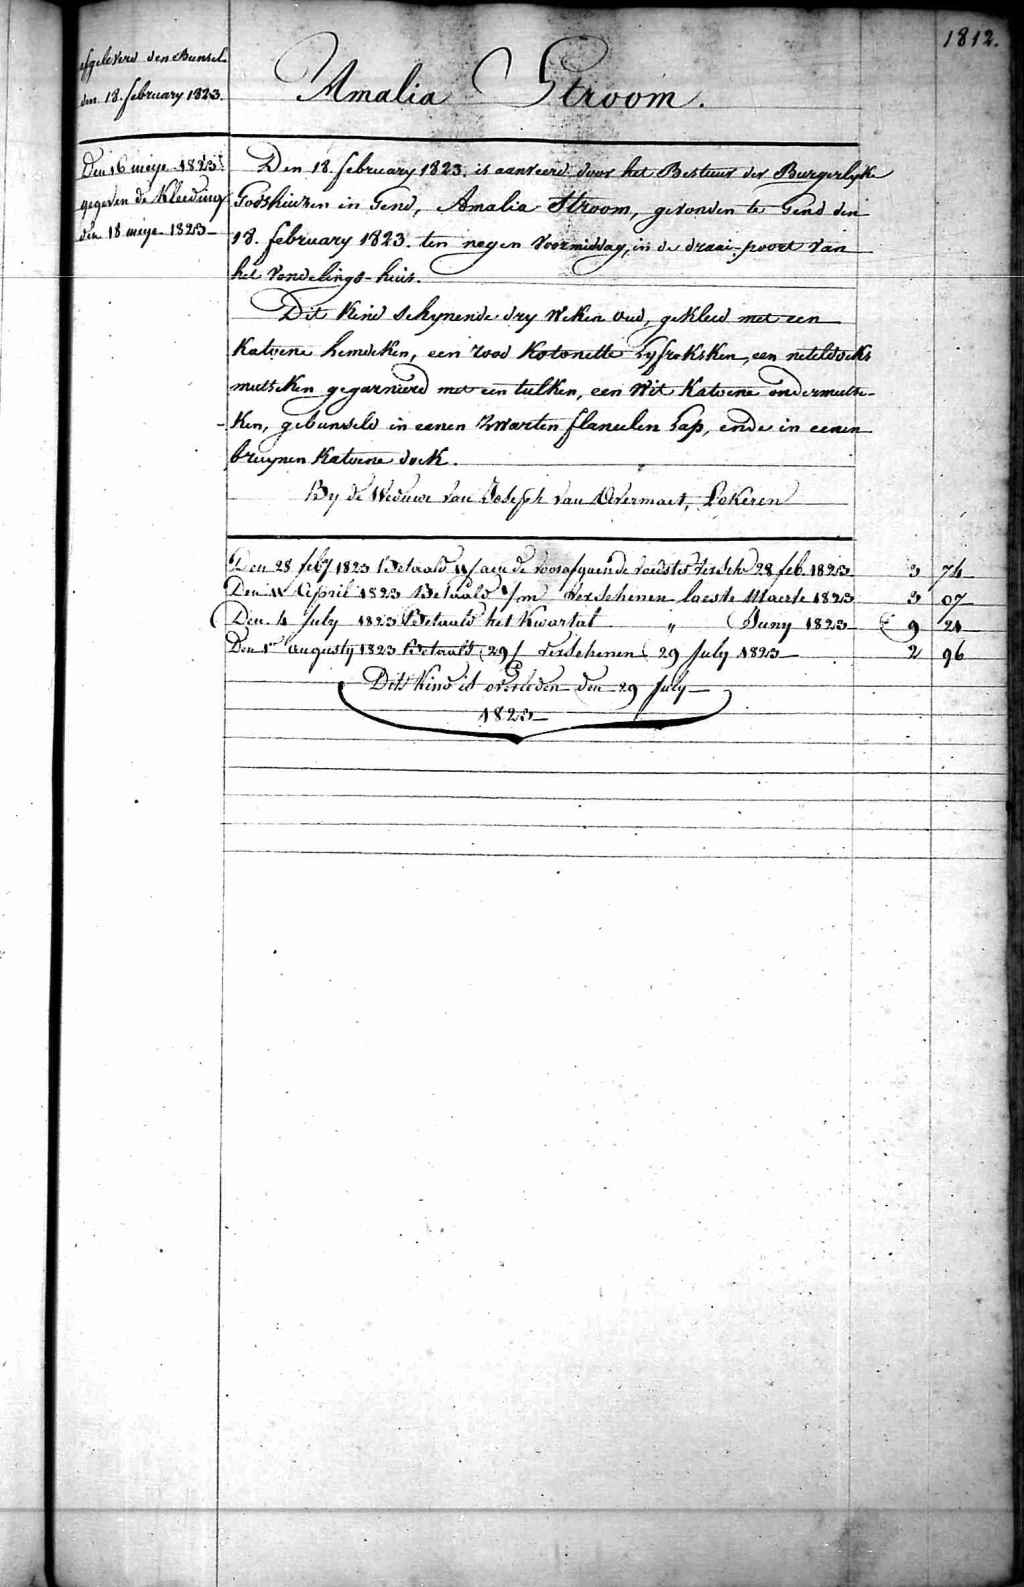 1812.
afgeleverd den Bunsel
den 18. february 1823.
Amalia Stroom.
Den 16 meye 1823
gegeven de Kleeding
den 18 meye 1823
Den 18. february 1823. is aanveerd door het Bestuur der Burgerlyke
Godshuizen in Gend, Amalia Stroom, gevonden te Gend den
18. february 1823. ten negen voormiddag, in de draai-poort van
het vondelings-huis.
Dit kind schynende dry weken oud, gekleed met een
katoene hemdeken, een rood kotonette lyfrokske, een neteldoeks
mutseken gegarnierd met een tulken, een wit katoene ondermutse-
ken, gebunseld in eenen zwarten flanelen lap, ende in eenen
bruynen katoene doek.
By de Weduwe van Joseph van Overmaet, Lokeren
Den 28 feby 1823 Betaald aen de voorafgaende versch 28 feb. 1823 3 74
Den April 1823 Betaald 1/m verschenen laeste Maerte 1823 3 07
Den 4 July 1823 Betaald het Kwartal " Juny 1823 9 21
Den 1er augusty 1823 Betaald 29/ verschenen 29 July 1823 2 96
Dits Kind is overleden den 29 July
1823